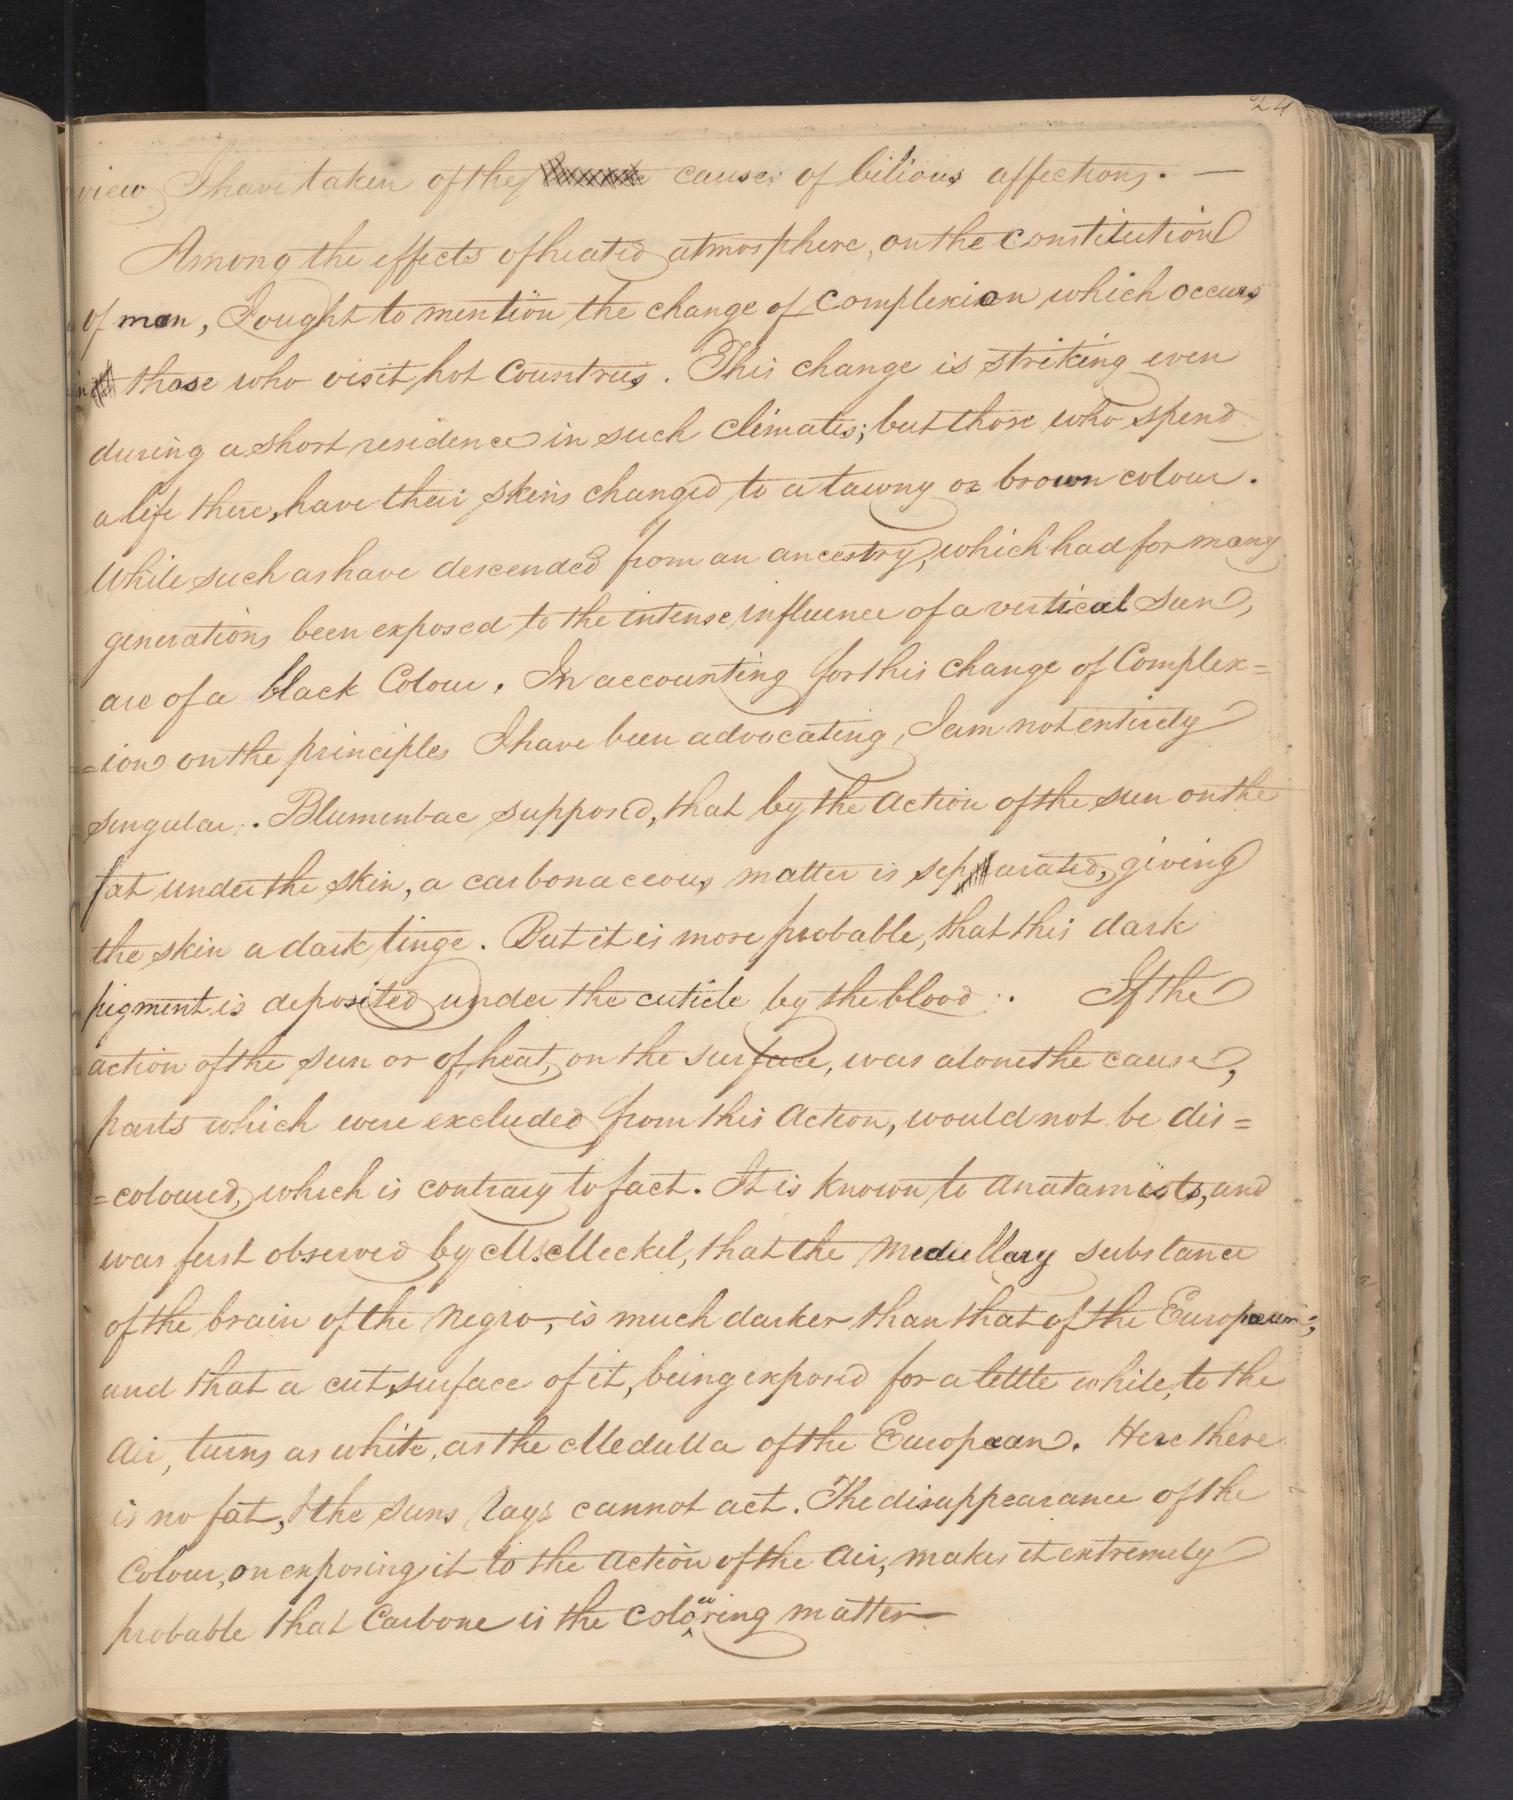 24
view I have taken of the cause of bilious affections. —
Among the effects of heated atmosphere, on the constitution
of man, I ought to mention the change of Complexion which occurs
in those who visit hot Countries. This change is striking even
during a short residence in such Climates; but those who spend
a life there, have their skins changed to a tawny or brown colour.
While such as have descended from an ancestry, which had for many
generations been exposed to the intense influence of a vertical Sun,
are of a black Colour. In accounting for this change of Complex=
=ion on the principles I have been advocating, I am not entirely
singular. Blumenbac supposed, that by the Action of the sun on the
fat under the skin, a carbonaceous matter is separated, giving
the skin a dark tinge. But it is more probable, that this dark
pigment is deposited under the cuticle by the blood. If the
action of the Sun or of heat, on the surface, was alone the cause,
parts which were excluded from this Action, would not be dis=
=coloured, which is contrary to fact. It is known to Anatamists, and
was first observed by M. Meckel, that the Medullary substance
of the brain of the Negro, is much darker than that of the European;
and that a cut surface of it, being exposed for a little while, to the
Air, turns as white, as the Medulla of the European. Here there
is no fat, & the Suns rays cannot act. The disappearance of the
Colour, on exposing it to the Action of the Air, makes it extremely
probable that Carbone is the Colouring matter